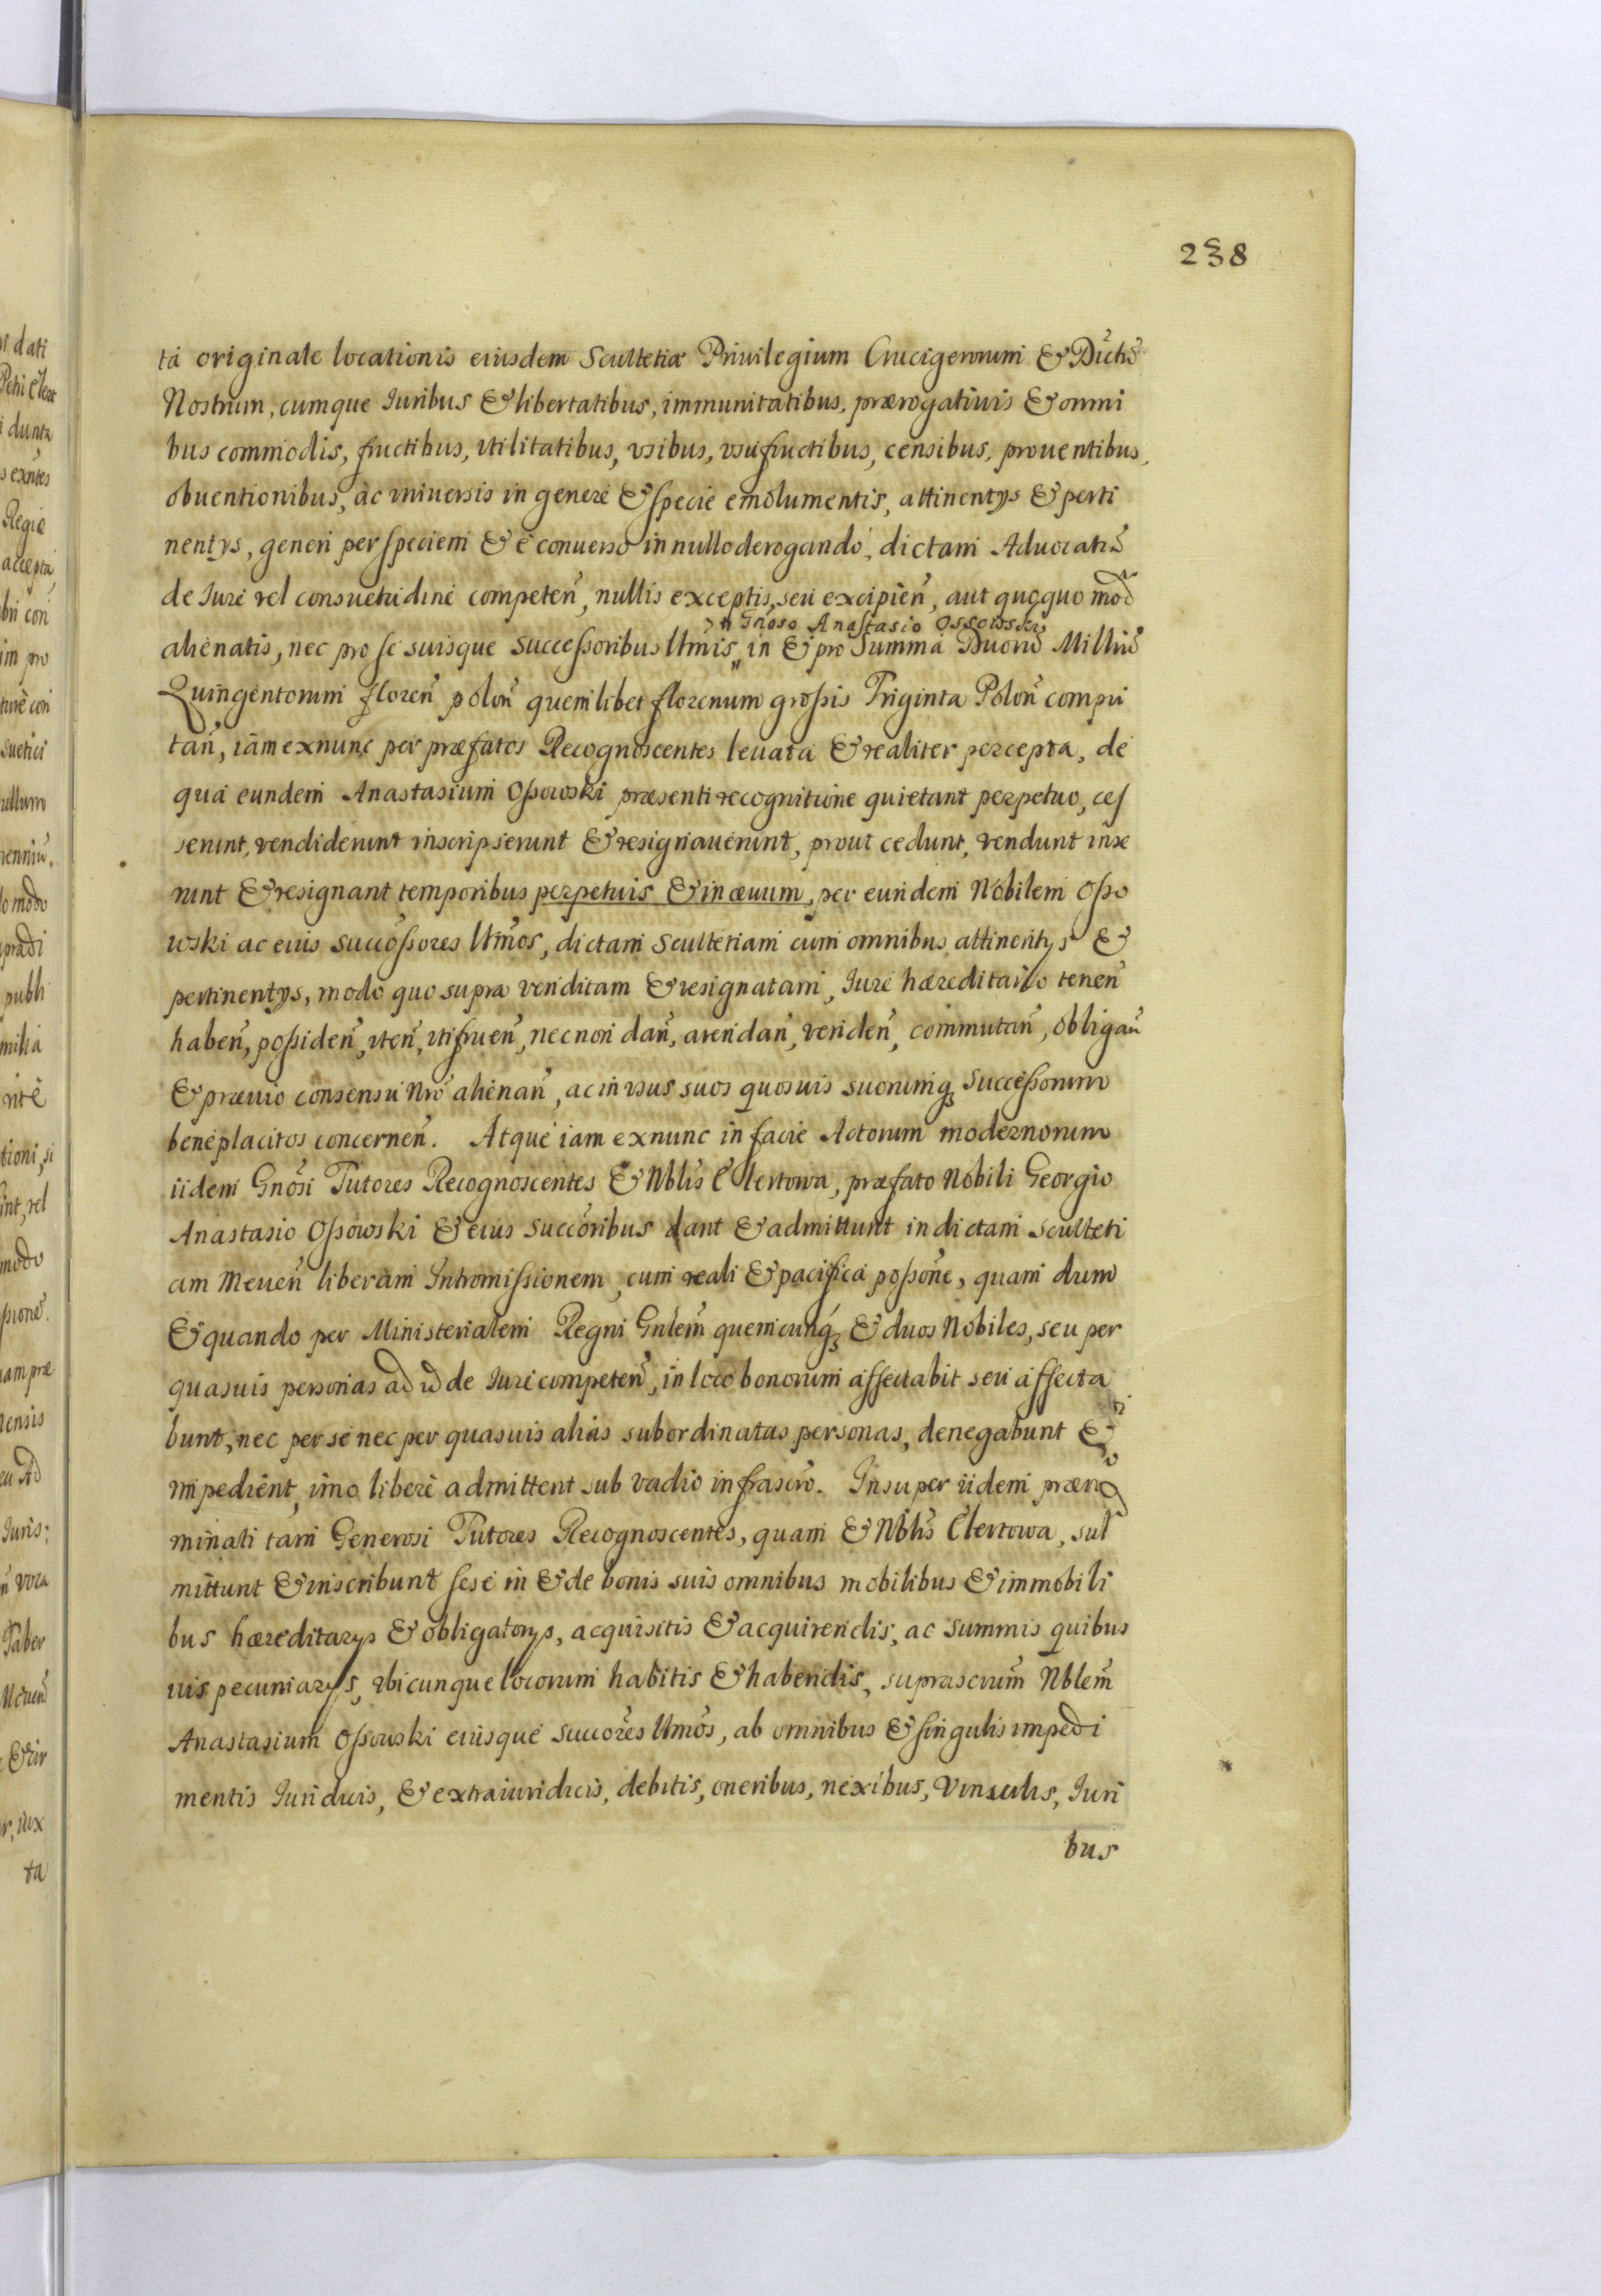 238
ta originale locationis eiusdem Scultetiæ Priuilegium Crucigerorum & Dictũ
Nostrum, cumque Iuribus & libertatibus, immunitatibus, prærogatiuis & omni
bus commodis, fructibus, vtilitatibus, vsibus, vsufructibus, censibus, prouentibus,
obuentionibus, ac vniuersis in genere & specie emolumentis, attinentys & perti
nentys, generi per speciem & è conuerso in nullo derogando, dictam Aduocatiã
de Iure vel consuetudine competeñ, nullis exceptis, seu excipieñ, aut quoquo mod̃
Gñoso Anastasio Ossowski
alienatis, nec pro se suisque successoribus Ltm̃is, in & pro Summa Duorũ Milliũ
Quingentorum floreñ poloñ quemlibet florenum großis Triginta Poloñ compu
tañ, iam exnunc per præfatos Recognoscentes leuata & realiter percepta, de
qua eundem Anastasium Oßowski præsenti recognitione quietant perpetuo, ces
serunt, vendiderunt inscripserunt & resignauerunt, prout cedunt, vendunt inse
runt & resignant temporibus perpetuis & in æuum, per eundem Nobilem Oßo
wski ac eius succoßores Ltm̃os, dictam Scultetiam cum omnibus attinentys &
pertinentys, modo quo supra venditam & resignatam, Iure hæreditario teneñ
habeñ, poßideñ, vteñ, vtifrueñ, necnon dañ, arendañ, vendeñ, commutañ, obligañ
& præuio consensu Nrõ alienañ, ac in vsus suos quosuis suorumq́ successorum
beneplacitos concerneñ. Atque iam exnunc in facie Actorum modernorum
iidem Gnõsi Tutores Recognoscentes & Nblis̃ Elertowa, præfato Nobili Georgio
Anastasio Oßowski & eius succõribus dant & admittunt in dictam Sculteti
am Meueñ liberam Intromißionem, cum reali & pacifica poßone, quam dum
& quando per Ministerialem Regni Gnlem̃ quemcunq́ & duos Nobiles, seu per
quasuis personas ad id de Iure competeñ, in loco bonorum affectabit seu affecta
bunt, nec per se nec per quasuis alias subordinatas personas, denegabunt &
impedient, imo liberè admittent sub vadio infrascrõ. Insuper iidem præno
minati tam Generosi Tutores Recognoscentes, quam & Nblis̃ Elertowa, sub
mittunt & inscribunt sese in & de bonis suis omnibus mobilibus & immobili
bus hæreditarys & obligatorys, acquisitis & acquirendis, ac summis quibus
uis pecuniarys, vbicunque locorum habitis & habendis, suprascrum̃ Nblem̃
Anastasium Oßowski eiusque succores̃ Ltmos̃, ab omnibus & singulis impedi
mentis Iuridicis, & extraiuridicis, debitis, oneribus, nexibus, vinculis, Iuri
bus